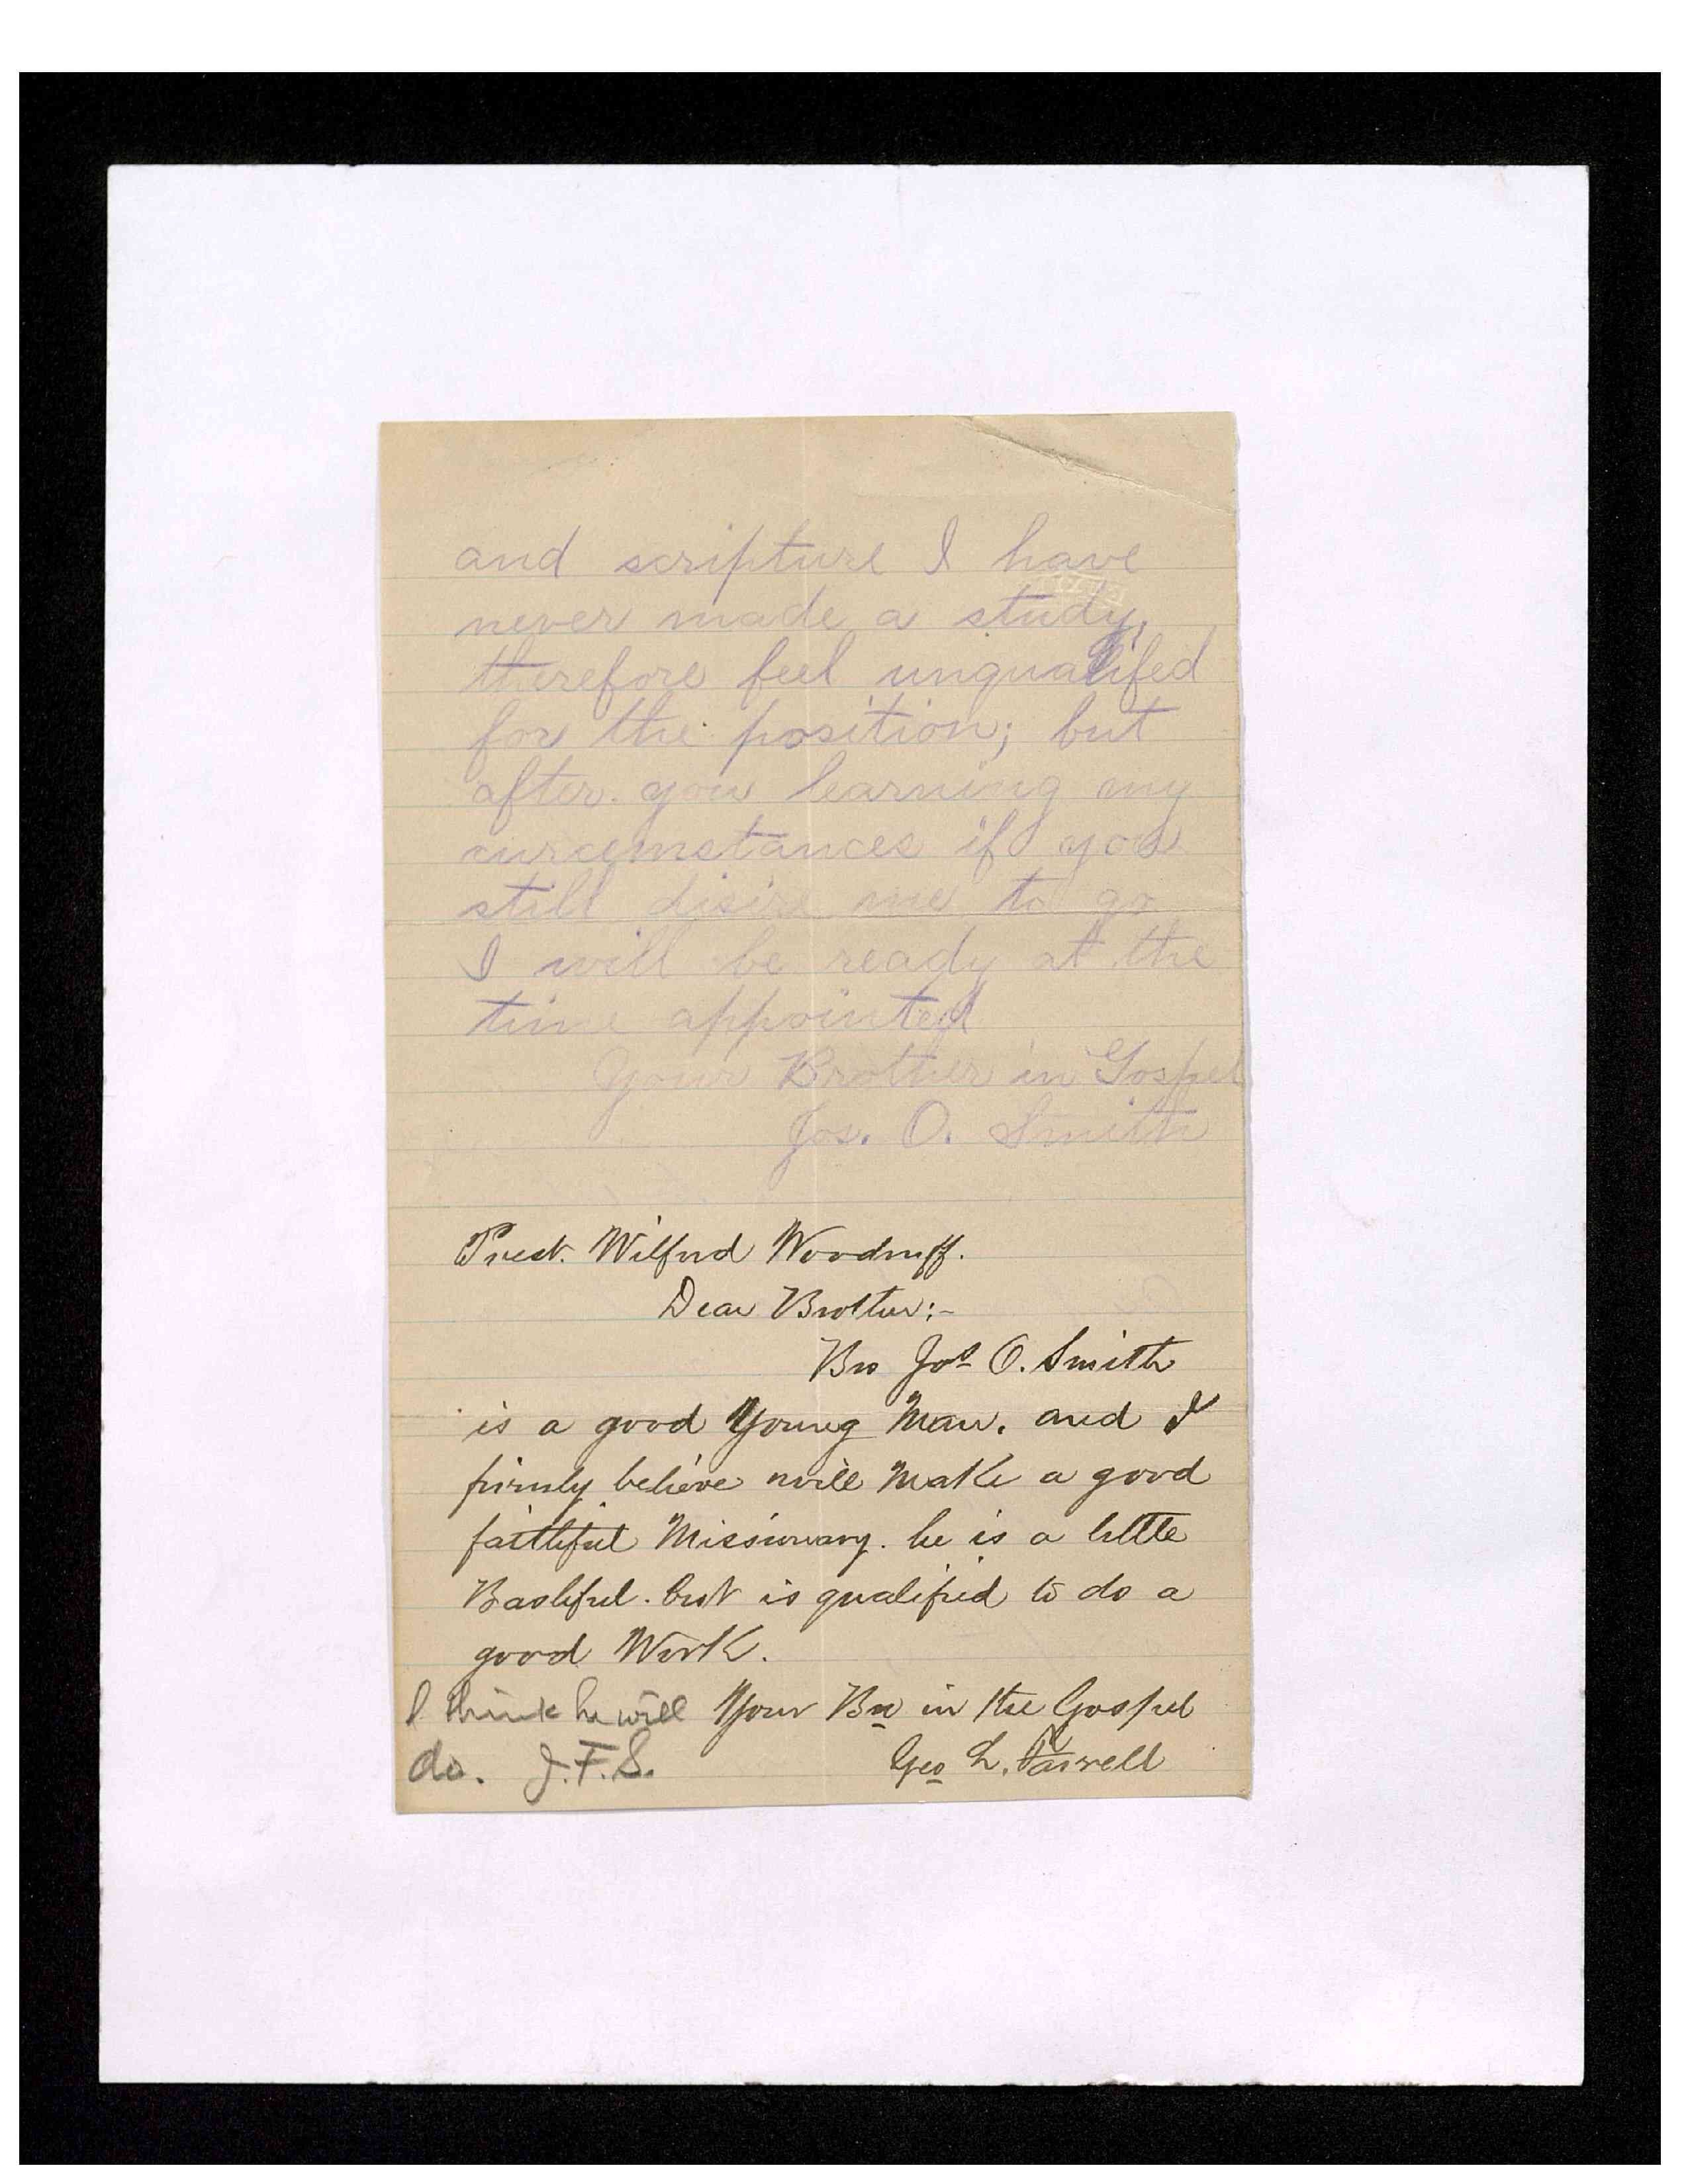 and scripture I have
never made a study,
therefore feel unqualifed
for the position; but
after you learning my
curcemstances if you
still disire me to go
I will be ready at the
time appointed
Your Brother in Gospel
Jos. O. Smith
Prest. Wilford Woodruff.
Dear Brother:-
Bro Jos O. Smith
is a good Young Man. and I
firmly believe will Make a good
faithful Missionary. he is a little
Bashful. but is qualified to do a
good Work.
Your Bro in the Gospel
Geo L. Farrell
I think he will
do. J.F.S.